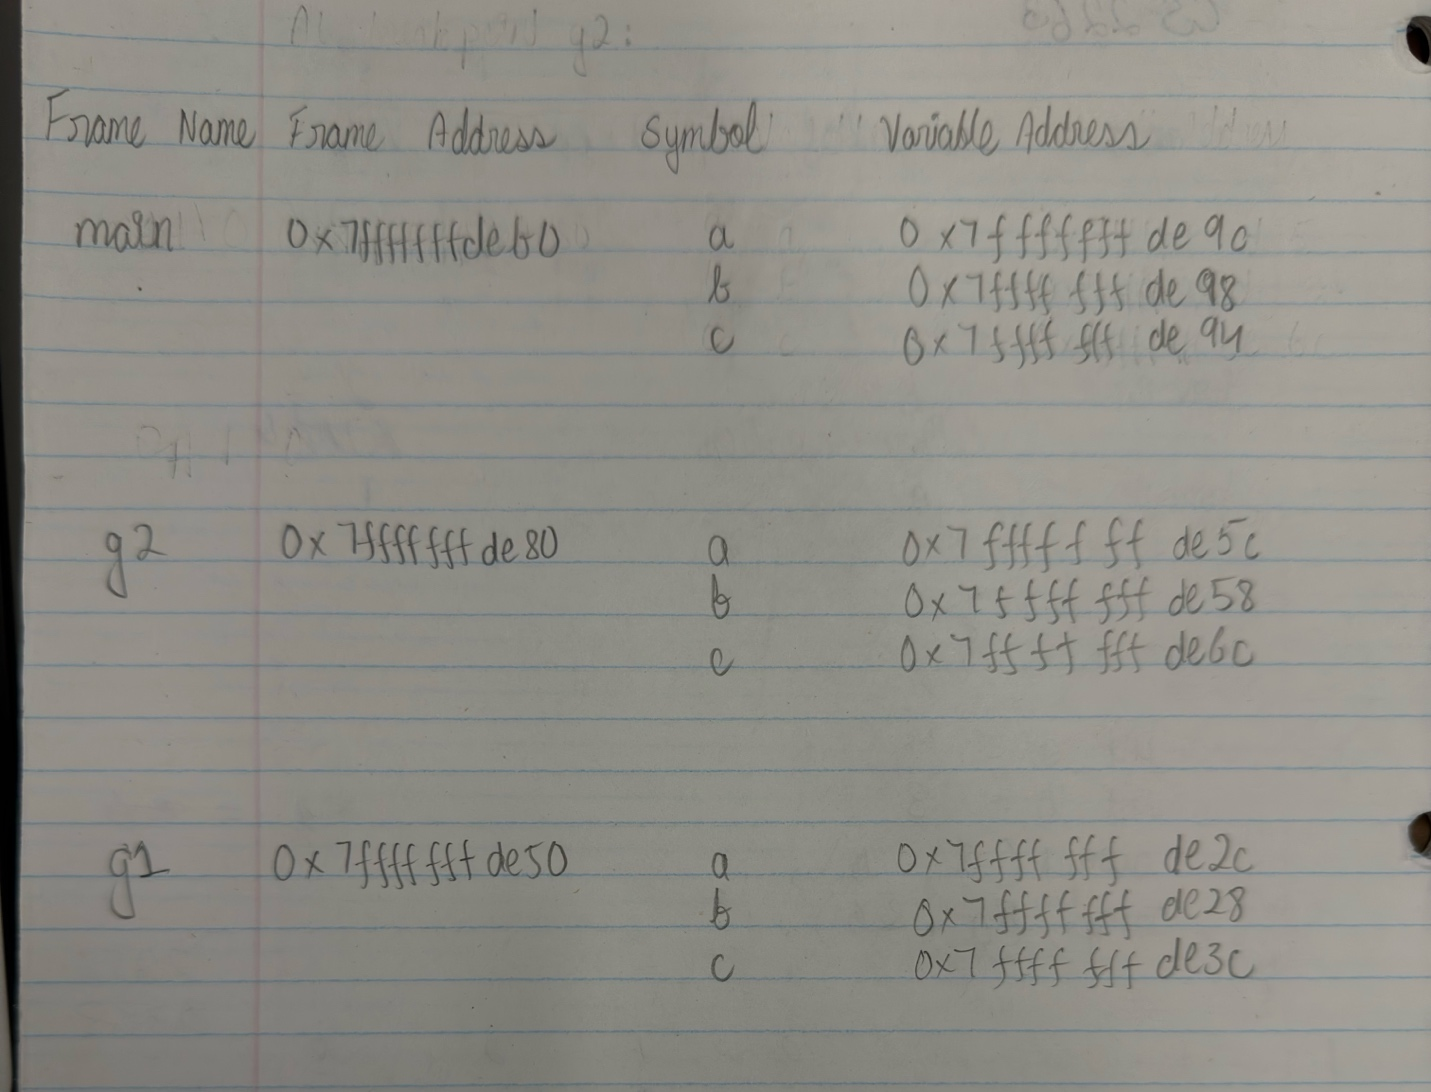 g2:
Frame Name Frame Address Symbol Variable Address
main 0x7fffffffdeb0 a 0x7fffffffde9c
b 0x7fffffffde98
c 0x7fffffffde94
g2 0x7fffffffde80 a 0x7fffffffde5c
b 0x7fffffffde58
c 0x7fffffffde6c
g1 0x7fffffffde50 a 0x7fffffffde2c
b 0x7fffffffde28
c 0x7fffffffde3c